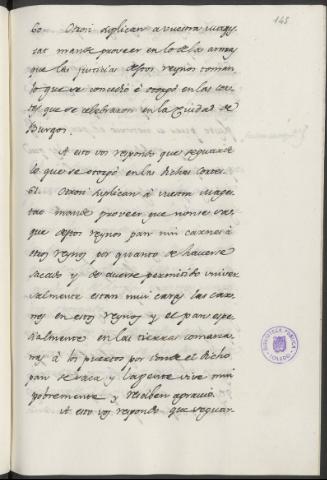 145
60. Otrosi suplican a vuestra mages-
tad mande proveer en lo de las armas
que las justicias destos reynos toman
lo que se concedio è otorgò en las cor-
tes que se celebraron en la Ciudad de
Burgos.
A esto vos respondo que se guarde
lo que se otorgò en las dichas Cortes.
61. Otrosi suplican à vuestra mages-
tad mande proveer que non se sa-
que destos reynos pan nin carnes à
otros reynos por quanto de haverse
sacado y de averse permitido univer-
salmente estan mui caras las car-
nes en estos reynos y el pan espe-
cialmente en las tierras comarca-
nas à los puertos por donde el dicho
pan se saca y la gente vive mui
pobremente y reciben agravio.
A esto vos respondo que se guar-
BIBLIOTECA PUBLICA
TOLEDO